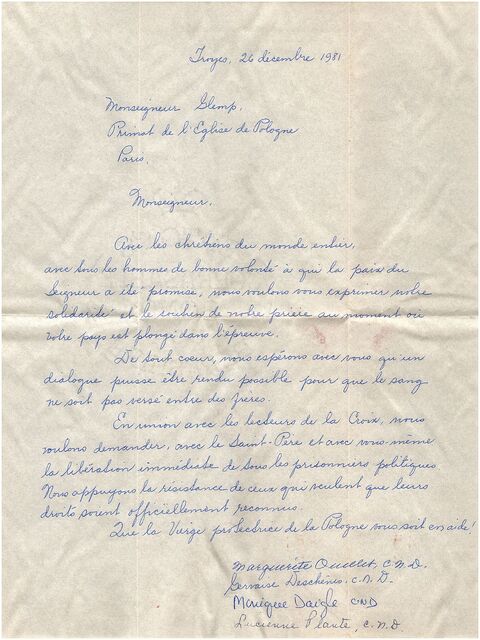 Troyes, 26 décembre 1981
Monseigneur Glemp,
Primat de l'Eglise de Pologne
Paris.
Monseigneur,
Avec les chrétiens du monde entier,
avec tous les hommes de bonne volonté à qui la paix du
Seigneur a été promise, nous voulons vous exprimer notre
solidarité et le soutien de notre prière au moment où
votre pays est plongé dans l'épreuve.
De tout coeur, nous espérons avec vous qu'un
dialogue puisse être rendu possible pour que le sang
ne soit pas versé entre des frères.
En union avec les lecteurs de la Croix, nous
voulons demander, avec le Saint-Père et avec vous-même
la libération immédiate de tous les prisonniers politiques
Nous appuyons la résistance de ceux qui veulent que leurs
droits soient officiellement reconnus.
Que la Vierge protectrice de la Pologne vous soit en aide!
Marguerite Ouellet, C.N.D.
Gervaise Deschênes, c.n.D.
Daigle CND
Lucienne Plante, c.n.D